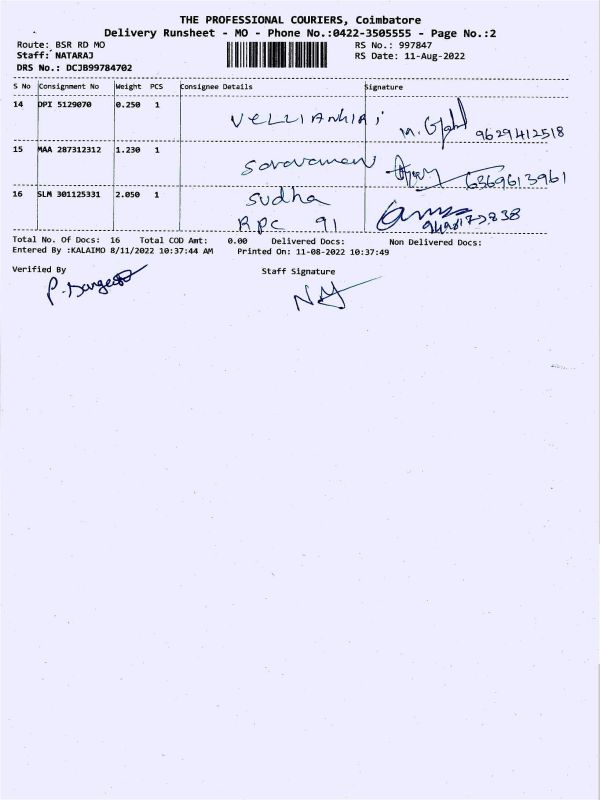 THE PROFESSIONAL COURIERS, Coimbatore
Delivery Runsheet - MO - Phone No.:0422-3505555 - Page No.:2
Route: BSR RD MO RS No.: 997847
Staff: NATARAJ RS Date: 11-Aug-2022
DRS No.: DCJB99784702
S No Consignment No Weight PCS Consignee Details Signature
14 DPI 5129070 0.250 1
9629412518
15 MAA 287312312 1.230 1
Saravanan 6369613961
16 SLM 301125331 2.050 1 Sudha
RPC 91
Total No. Of Docs: 16 Total COD Amt: 0.00 Delivered Docs: Non Delivered Docs:
Entered By :KALAIMO 8/11/2022 10:37:44 AM Printed On: 11-08-2022 10:37:49
Verified By Staff Signature